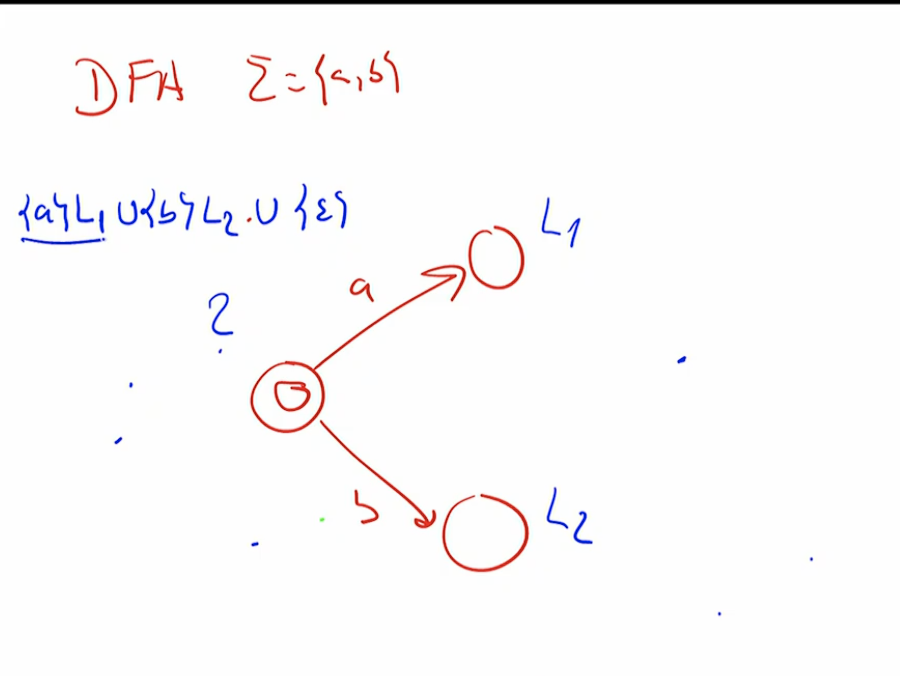 DFA Σ={a,b}
{a}L₁∪{b}L₂.∪{ε}
L₁
a
?
b
L₂